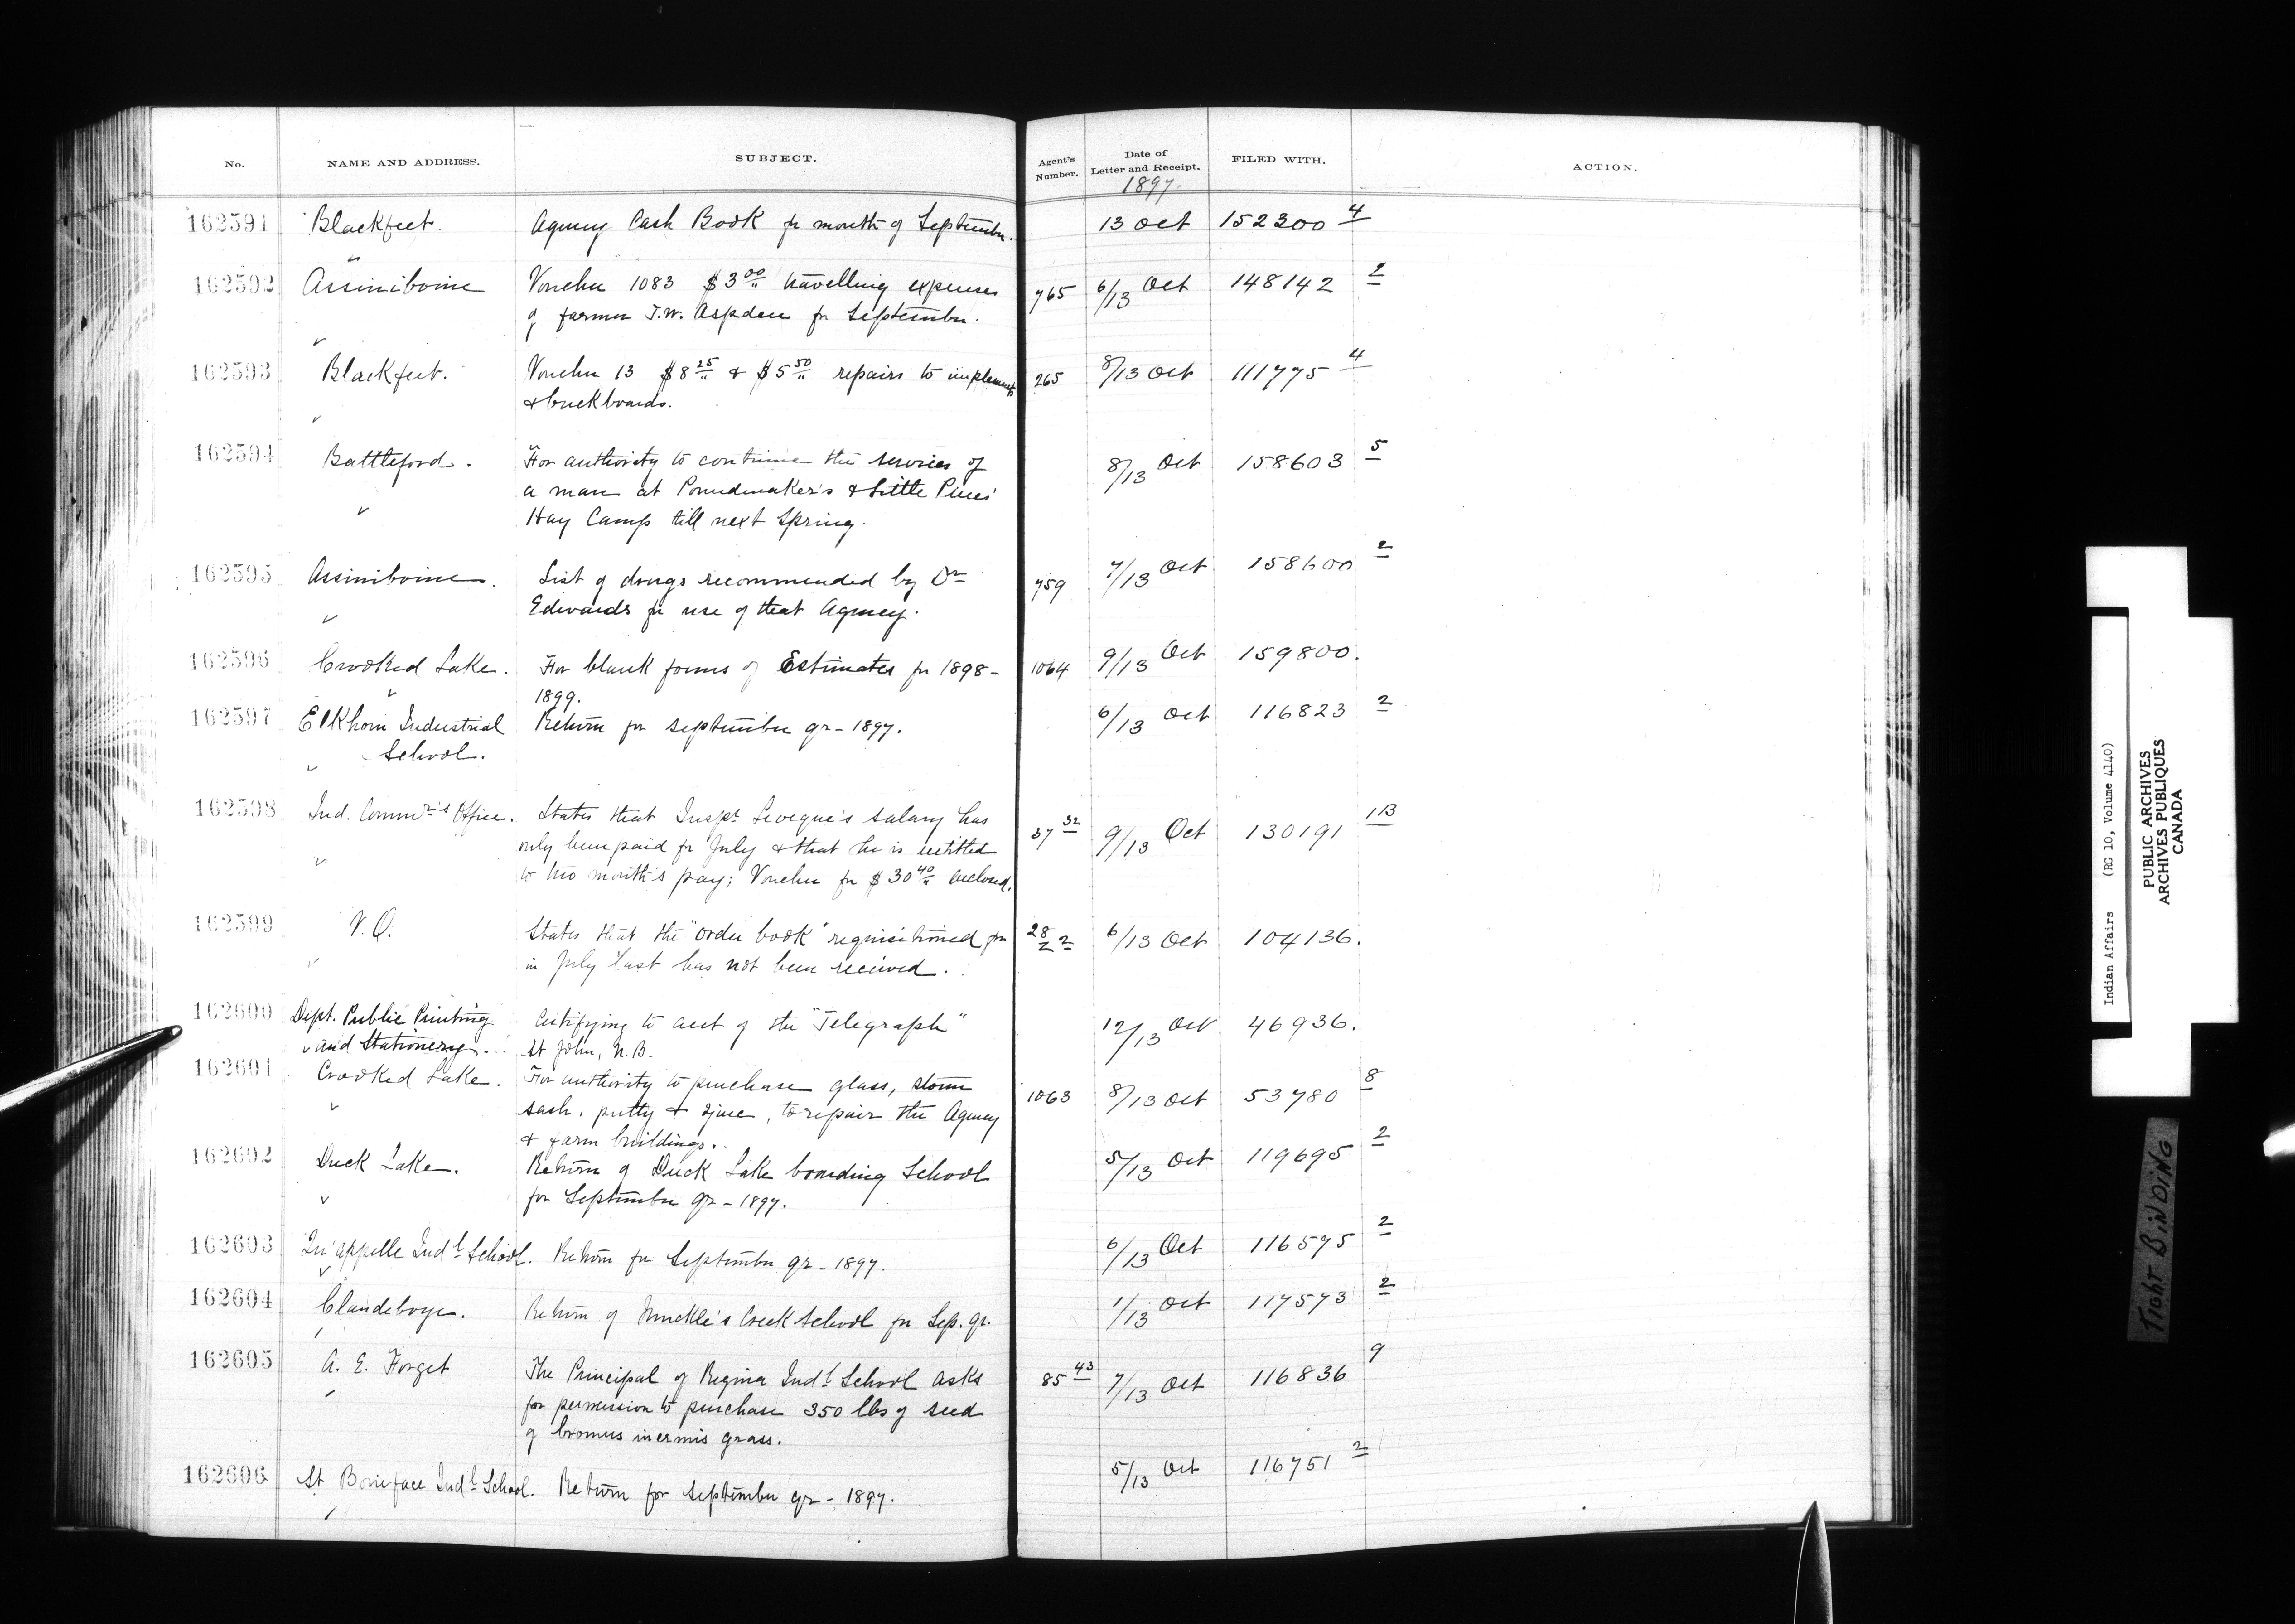 No. NAME AND ADDRESS. SUBJECT. Agent's Number. Date of Letter and Receipt. FILED WITH. ACTION.
1897.
162591 Blackfeet. Agency Cash Book for month of September. 13 Oct 152300 4
162592 Assiniboine Voucher 1083 $3 00 travelling expenses 765 6/13 Oct 148142 2
of farmer T.W. Aspden for September.
162593 Blackfeet. Voucher 13 $8 25 & $5 50 repairs to implements 265 8/13 Oct 111775 4
& buckboards.
162594 Battleford. For authority to continue the services of 8/13 Oct 158603 5
a man at Poundmaker's & Little Pines'
Hay Camp till next Spring.
162595 Assiniboine. List of drugs recommended by Dr 759 7/13 Oct 158600 2
Edwards for use of that Agency.
162596 Crooked Lake. For blank forms of Estimates for 1898- 1064 9/13 Oct 159800.
1899.
162597 Elkhorn Industrial Return for September qr - 1897. 6/13 Oct 116823 2
School.
162598 Ind. Commr's Office. States that Inspr Leveque's salary has 37 32 9/13 Oct 130191 1B
only been paid for July & that he is entitled
to two month's pay; Voucher for $30 40 enclosed.
162599 V.O. States that the "order book" requisitioned for 28 2 2 6/13 Oct 104136.
in July last has not been received.
162600 Dept. Public Printing Certifying to acct of the "Telegraph" 12/13 Oct 46936.
and Stationery. St John, N.B.
162601 Crooked Lake. For authority to purchase glass, storm 1063 8/13 Oct 53780 8
sash, putty & zinc, to repair the Agency
& farm buildings.
162602 Duck Lake. Return of Duck Lake boarding School 5/13 Oct 119695 2
for September qr - 1897.
162603 Qu'appelle Indl School. Return for September qr - 1897. 6/13 Oct 116575 2
162604 Clandeboye. Return of Muckle's Creek School for Sep. qr. 1/13 Oct 117573 2
162605 A. E. Forget The Principal of Regina Indl School asks 85 43 7/13 Oct 116836 9
for permission to purchase 350 lbs of seed
of bromus inermis grass.
162606 St Boniface Indl School. Return for September qr - 1897. 5/13 Oct 116751 2
Indian Affairs (RG 10, Volume 4140)
PUBLIC ARCHIVES
ARCHIVES PUBLIQUES
CANADA
TIGHT BINDING